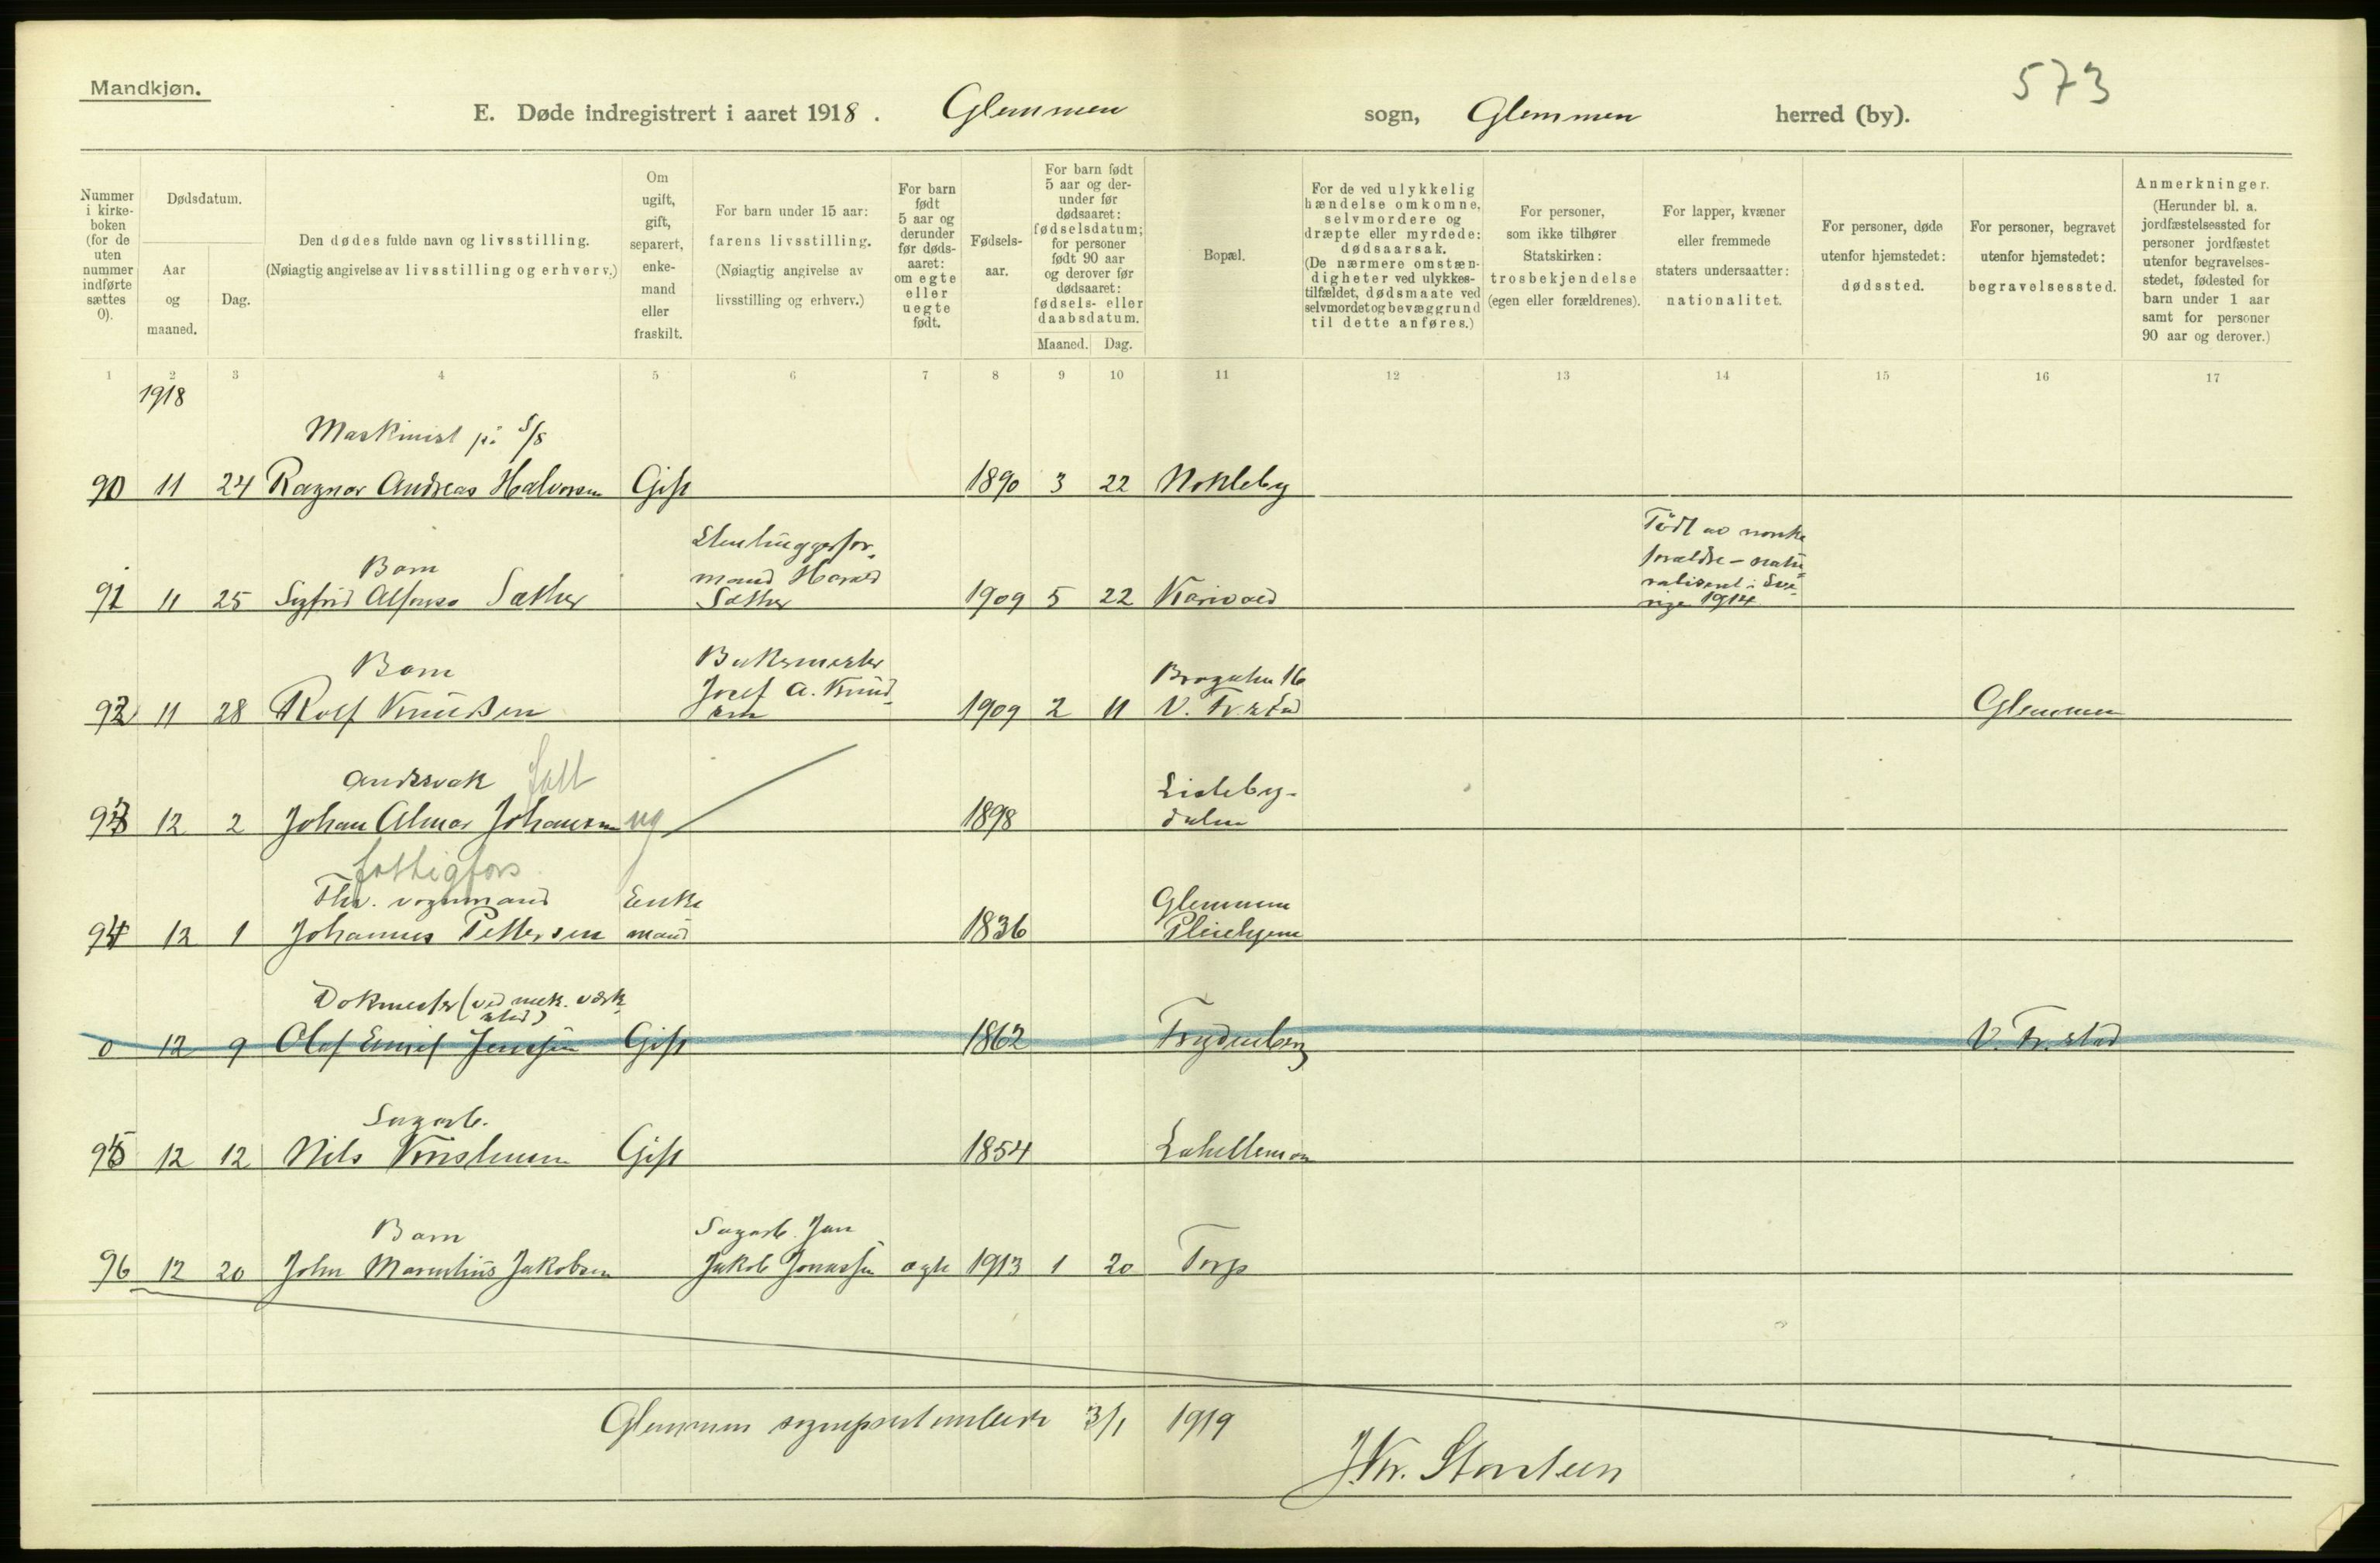 573
Mandkjøn.
E. Døde indregistrert i aaret 1918. Glemmen sogn, Glemmen herred (by).
Nummer i kirke-boken (for de uten nummer indførte sættes 0).
Dødsdatum.
Aar og maaned.
Dag.
Den dødes fulde navn og livsstilling.
(Nøiagtig angivelse av livsstilling og erhverv.)
Om ugift, gift, separert, enke-mand eller fraskilt.
For barn under 15 aar: farens livsstilling. (Nøiagtig angivelse av livsstilling og erhverv.)
For barn født 5 aar og derunder før døds-aaret: om egte eller uegte født.
Fødsels-aar.
For barn født 5 aar og der-under før dødsaaret: fødselsdatum; for personer født 90 aar og derover før dødsaaret: fødsels- eller daabsdatum.
Maaned. Dag.
Bopæl.
For de ved ulykkelig hændelse omkomne, selvmordere og dræpte eller myrdede: dødsaarsak. (De nærmere omstæn-digheter ved ulykkes-tilfældet, dødsmaate ved selvmordet og bevæggrund til dette anføres.)
For personer, som ikke tilhører Statskirken: trosbekjendelse (egen eller forældrenes).
For lapper, kvæner eller fremmede staters undersaatter: nationalitet.
For personer, døde utenfor hjemstedet: dødssted.
For personer, begravet utenfor hjemstedet: begravelsessted.
Anmerkninger. (Herunder bl. a. jordfæstelsessted for personer jordfæstet utenfor begravelses-stedet, fødested for barn under 1 aar samt for personer 90 aar og derover.)
1 2 3 4 5 6 7 8 9 10 11 12 13 14 15 16 17
1918
Maskinist på S/S
90 11 24 Ragnar Andreas Halvorsen Gift 1890 3 22 Nokleby
Barn Stenhuggerfor-
mand Harald Født av norske
forældre - natu-
91 11 25 Sigfrid Alfonso Sæther Sæther 1909 5 22 ralisert i Sve-
rige 1914
Barn Bakermester
Josef A. Knud- 16
92 11 28 Rolf Knudsen sen 1909 2 11 V. Fr.stad Glemmen
fatt
93 12 2 Johan Almar Johansen ug 1898 Lisleby-
dalen
fattigfors
Fhv. vognmand Enke Glemmen
94 12 1 Johannes Pettersen mand 1836 Pleiehjem
Dokmester (ved mek. verk-
sted)
0 12 9 Olaf Emil Jensen Gift 1862 Frydenberg V. Fr.stad
Sagarb.
95 12 12 Nils Kristensen Gift 1854 Lahellemoen
Barn Sagarb. Jan
96 12 20 John Marentius Jakobsen Jakob Jonassen ægte 1913 1 20 Torp
Glemmen sogneprestembede 3/1 1919
J. Kr. Storsteen